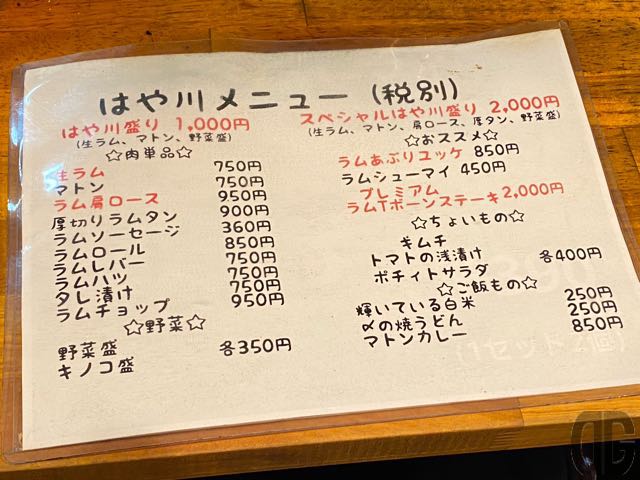 はや川メニュー (税別)
はや川盛り 1,000円
(生ラム、マトン、野菜盛)
☆肉単品☆
生ラム 750円
マトン 750円
ラム肩ロース 950円
厚切りラムタン 900円
ラムソーセージ 360円
ラムロール 850円
ラムレバー 750円
ラムハツ 750円
タレ漬け 750円
ラムチョップ 950円
☆野菜☆
野菜盛 各350円
キノコ盛
スペシャルはや川盛り 2,000円
(生ラム、マトン、肩ロース、厚タン、野菜盛)
☆おススメ☆
ラムあぶりユッケ 850円
ラムシューマイ 450円
プレミアム
ラムTボーンステーキ2,000円
☆ちょいもの☆
キムチ
トマトの浅漬け 各400円
ポテイトサラダ
☆ご飯もの☆
輝いている白米 250円
〆の焼うどん 250円
マトンカレー 850円